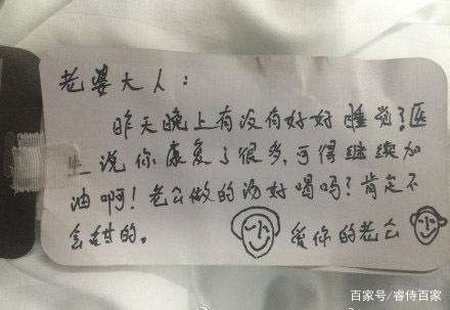 老婆大人：
昨天晚上有没有好好睡觉？医
生说你康复了很多，可得继续加
油啊！老公做的汤好喝吗？肯定不
会的。 爱你的老公
百家号/睿侍百家